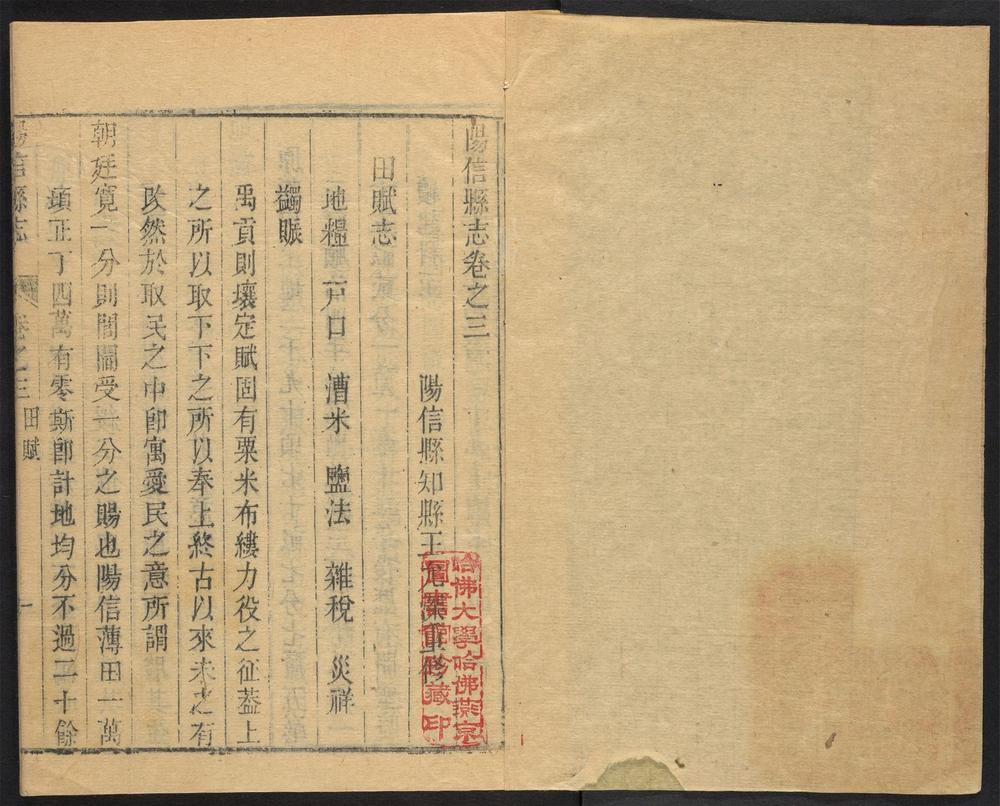 陽信縣志卷之三
陽信縣知縣王允深重修
田賦志
地糧 戸口 漕米 鹽法 雜稅 災祥
蠲賑
禹貢則壤定賦固有粟米布縷力役之征葢上
之所以取下下之所以奉上終古以來未之有
攺然於取民之中卽寓愛民之意所謂
朝廷寬一分則閭閻受一分之賜也陽信薄田一萬
頃正丁四萬有零斯卽計地均分不過二十餘
陽信縣志 卷之三 田賦 一
哈佛大學哈佛燕京
圖書館珍藏印